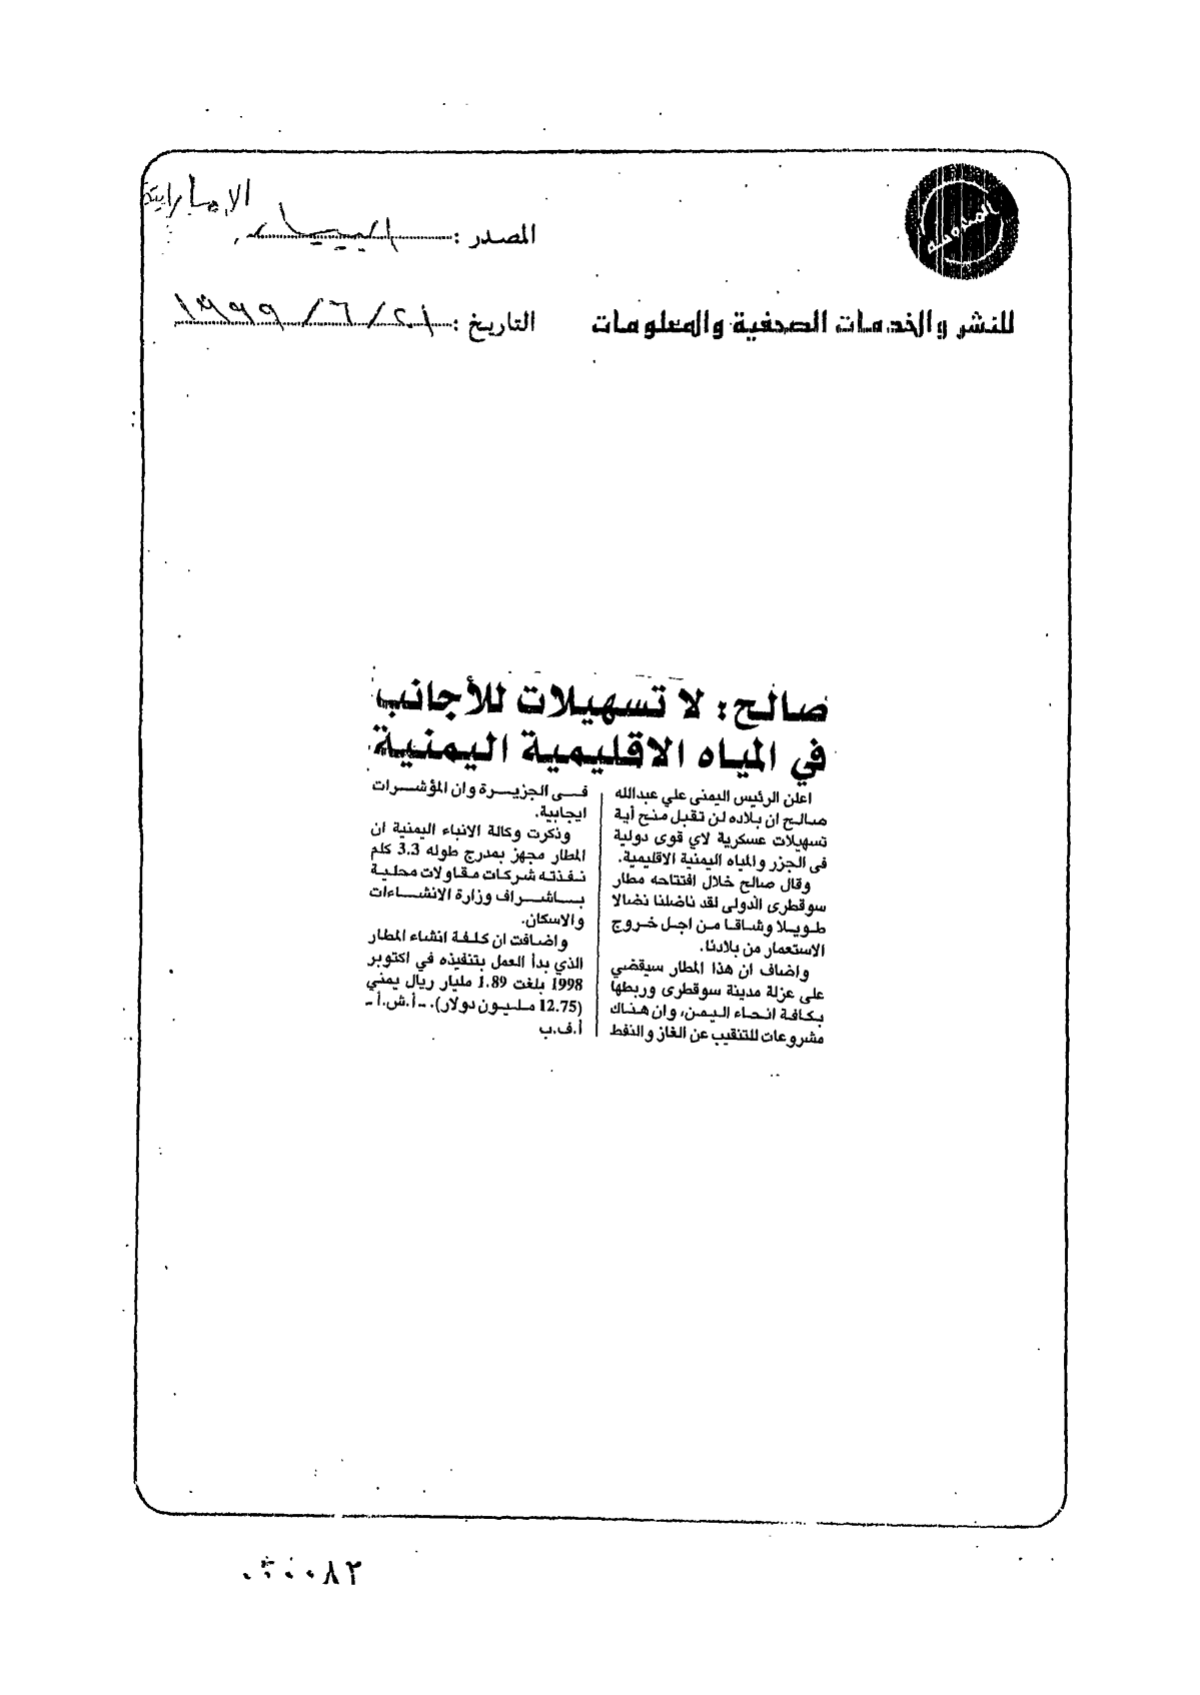 الإماراتية
المصدر : البيان
للنشر والخدمات الصحفية والمعلومات
التاريخ : ٢١ / ٦ / ١٩٩٩
صالح: لا تسهيلات للأجانب
في المياه الاقليمية اليمنية
اعلن الرئيس اليمنى علي عبدالله
صالح ان بلاده لن تقبل منح أية
تسهيلات عسكرية لاي قوى دولية
فى الجزر والمياه اليمنية الاقليمية.
وقال صالح خلال افتتاحه مطار
سوقطرى الدولى لقد ناضلنا نضالا
طويلا وشاقا من اجل خروج
الاستعمار من بلادنا.
واضاف ان هذا المطار سيقضي
على عزلة مدينة سوقطرى وربطها
بكافة انحاء اليمن، وان هناك
مشروعات للتنقيب عن الغاز والنفط
فى الجزيرة وان المؤشرات
ايجابية.
وذكرت وكالة الانباء اليمنية ان
المطار مجهز بمدرج طوله 3.3 كلم
نفذته شركات مقاولات محلية
باشراف وزارة الانشاءات
والاسكان.
واضافت ان كلفة انشاء المطار
الذي بدأ العمل بتنفيذه في اكتوبر
1998 بلغت 1.89 مليار ريال يمني
(12.75 مليون دولار). ـ أ.ش.أ ـ
أ.ف.ب